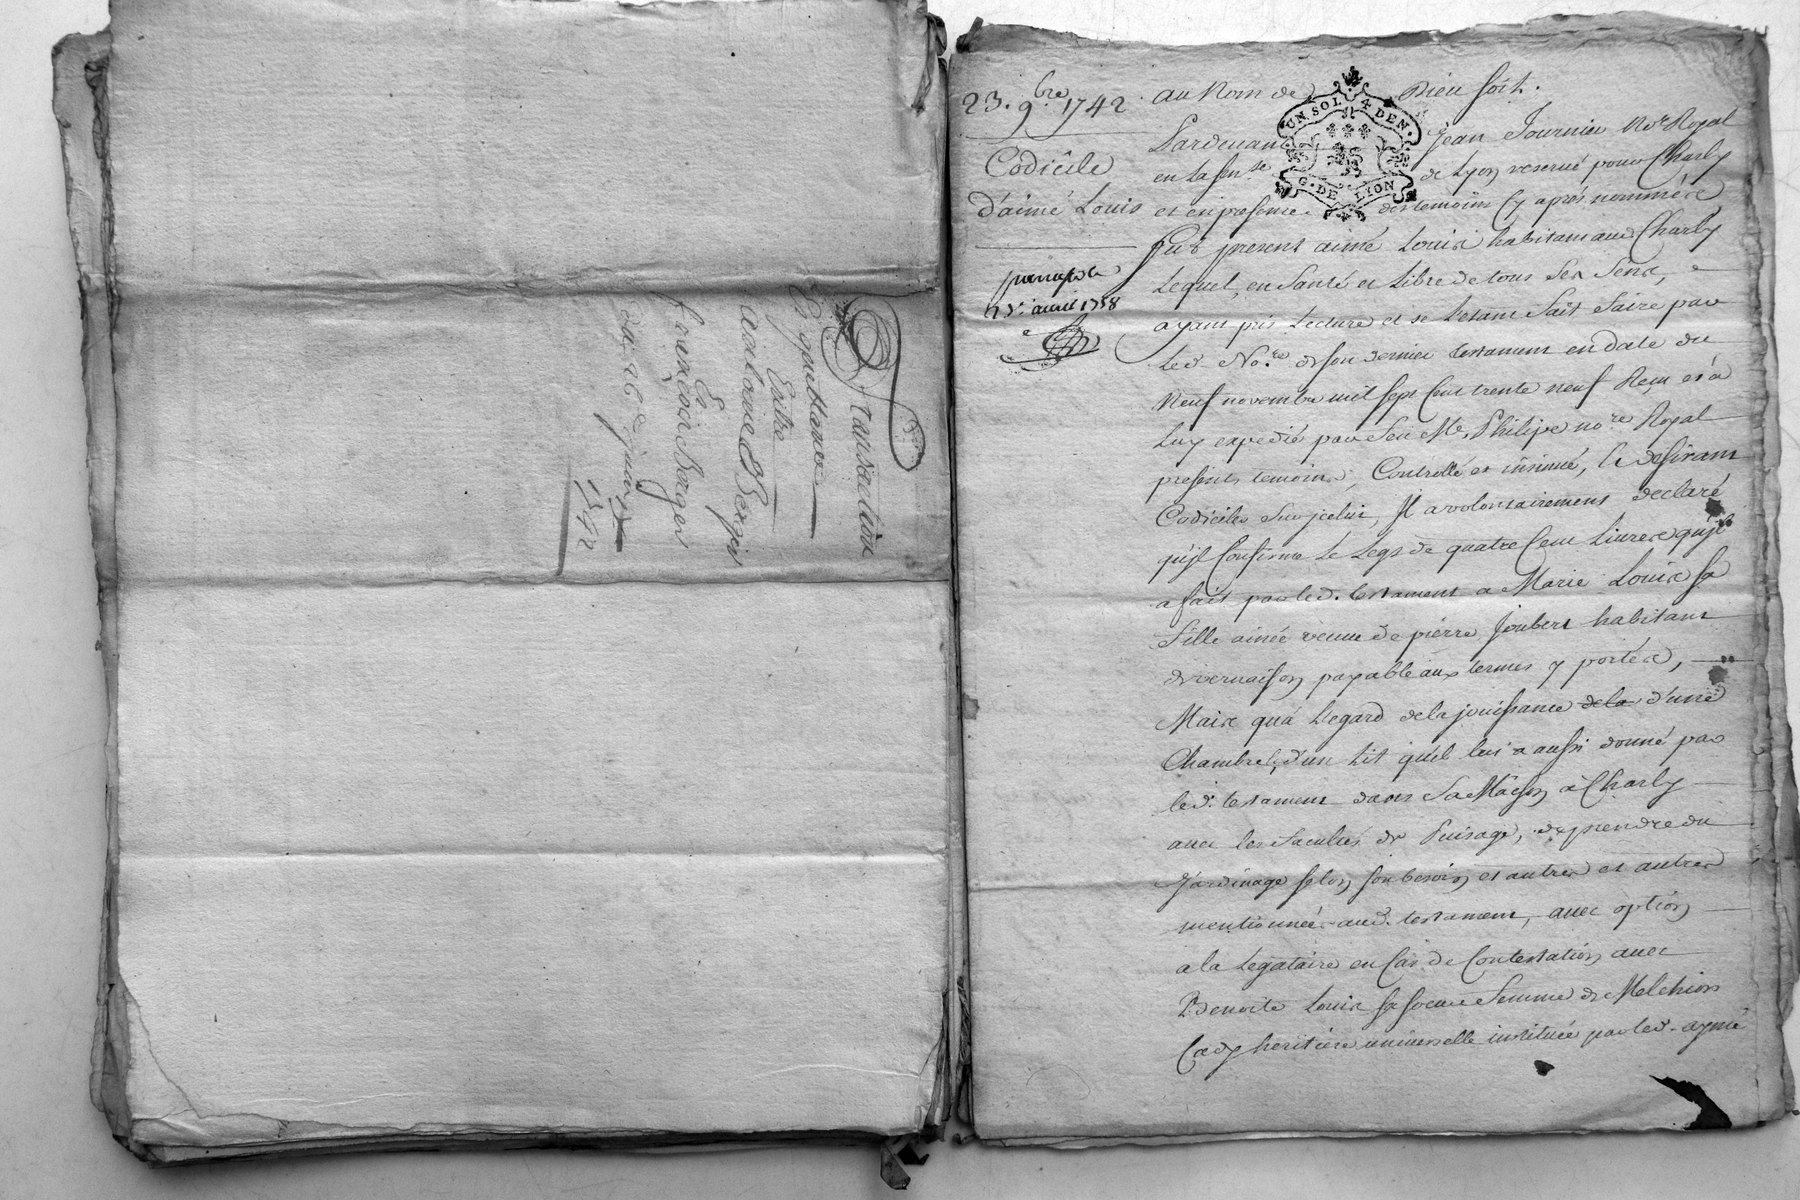 Transaction
Et quittance
Entre
antoine Berger
Et
francois Berger
du 26
1742
23. 9bre 1742
Codicile
d'aimé Louis
avril 1758
au Nom de Dieu soit.
UN SOL 4 DEN.
G. DE LYON
Pardevant Jean Fournier No.re Royal
en la sen.ée de Lyon reservé pour Charly
et en presence des temoins Cy aprés nommés
fut present aimé Louis habitant aud Charly
Lequel, en Santé et Libre de tous Ses Sens,
ayant pris Lecture et se L'etant fait faire par
Led No.re de son dernier testament en date du
Neuf novembre mil sept Cent trente neuf Reçu et a
Luy expedié par feu Me. Philipe no.re Royal
presents temoins, Controllé et insinué, et desirant
Codiciler sur jcelui, Jl a volontairement declaré
qu'jl Confirme Le Legs de quatre Cent Livres qu'jl
a fait par led. testament a Marie Louis sa
fille ainée veuve de pierre Joubert habitant
de vernaison payable aux termes y portés,
Mais qu'a L'egard de la jouissance de la d'une
Chambre, d'un Lit qu'il lui a aussi donné par
led. testament dans Sa Maison a Charly
avec les facultés de Puisage, de prendre du
Jardinage selon son besoin et autres et autres
mentionnée aud. testament, avec option
a la Legataire en Cas de Contestation avec
Benoite Louis sa soeur femme de Melchior
Cady heritiere universelle instituée par led. aymé